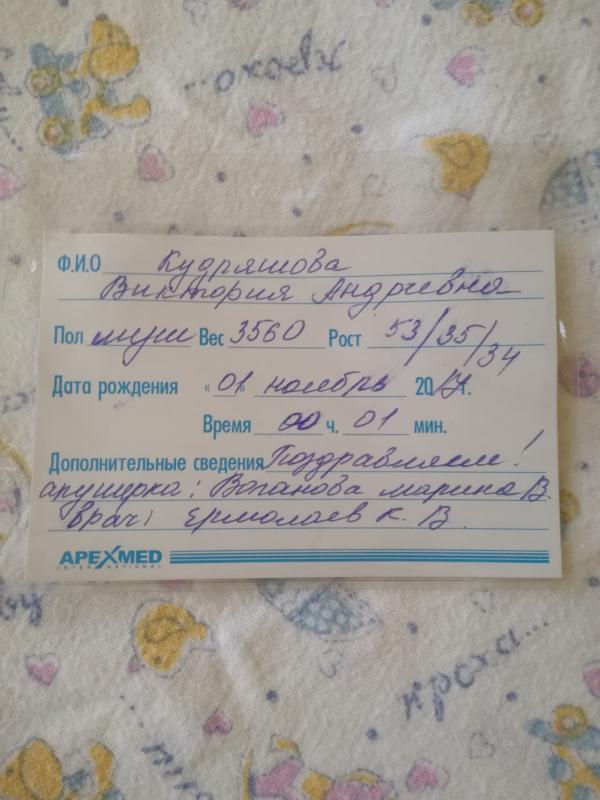 ...кроха
Ф.И.О Кудряшова
Виктория Андреевна
Пол муж Вес 3560 Рост 53/35/34
Дата рождения «01» ноябрь 2017г.
Время 00 ч. 01 мин.
Дополнительные сведения Поздравляем!
акушерка: Ваганова Марина В.
Врач: Ермолаев К. В.
APEXMED
INTERNATIONAL
кроха...